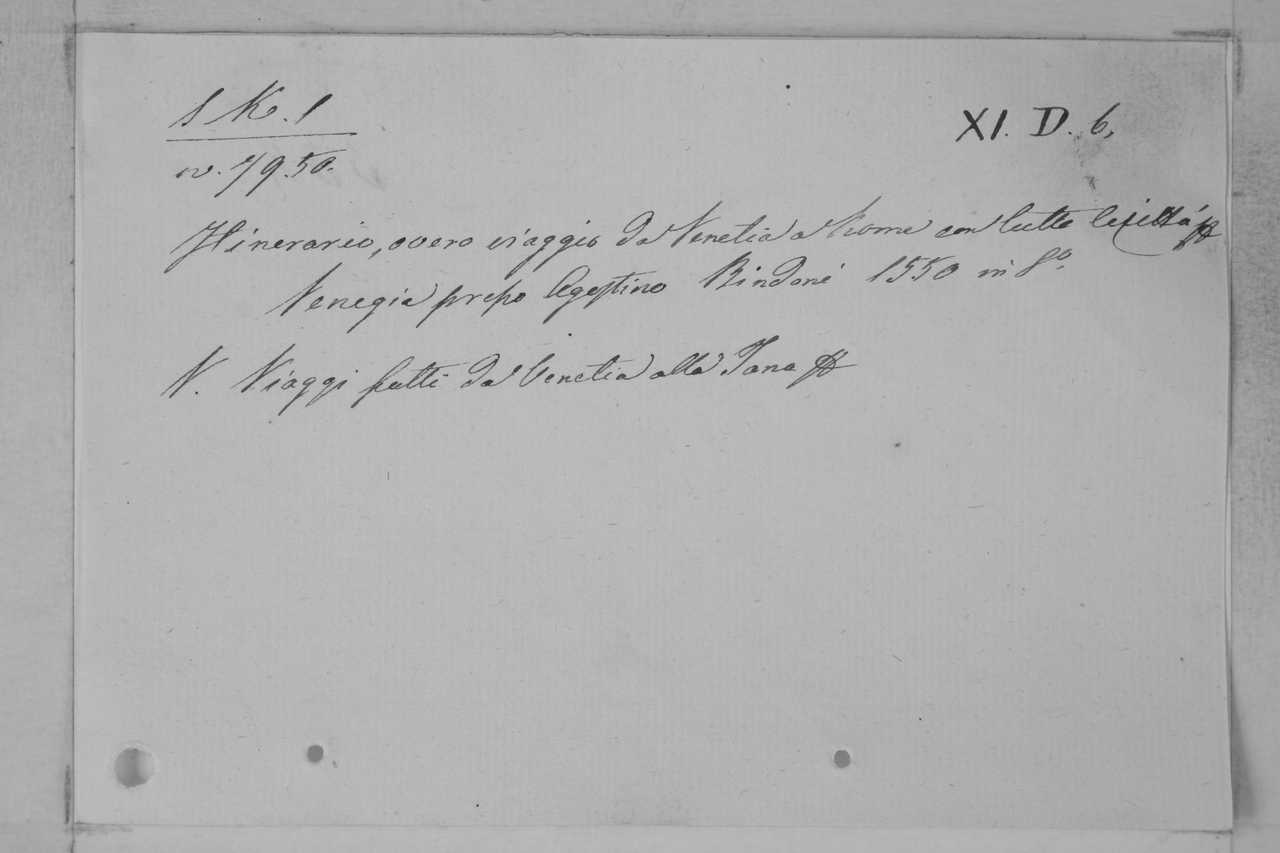 1 K. 1
XI. D. 6,
n. 79.50.
Itinerario, overo viaggio da Venetia a Rome con tutte le città
Venegia presso Agostino Bindoni 1550 in 8º.
N. Viaggi fatti da Venetia alla Tana